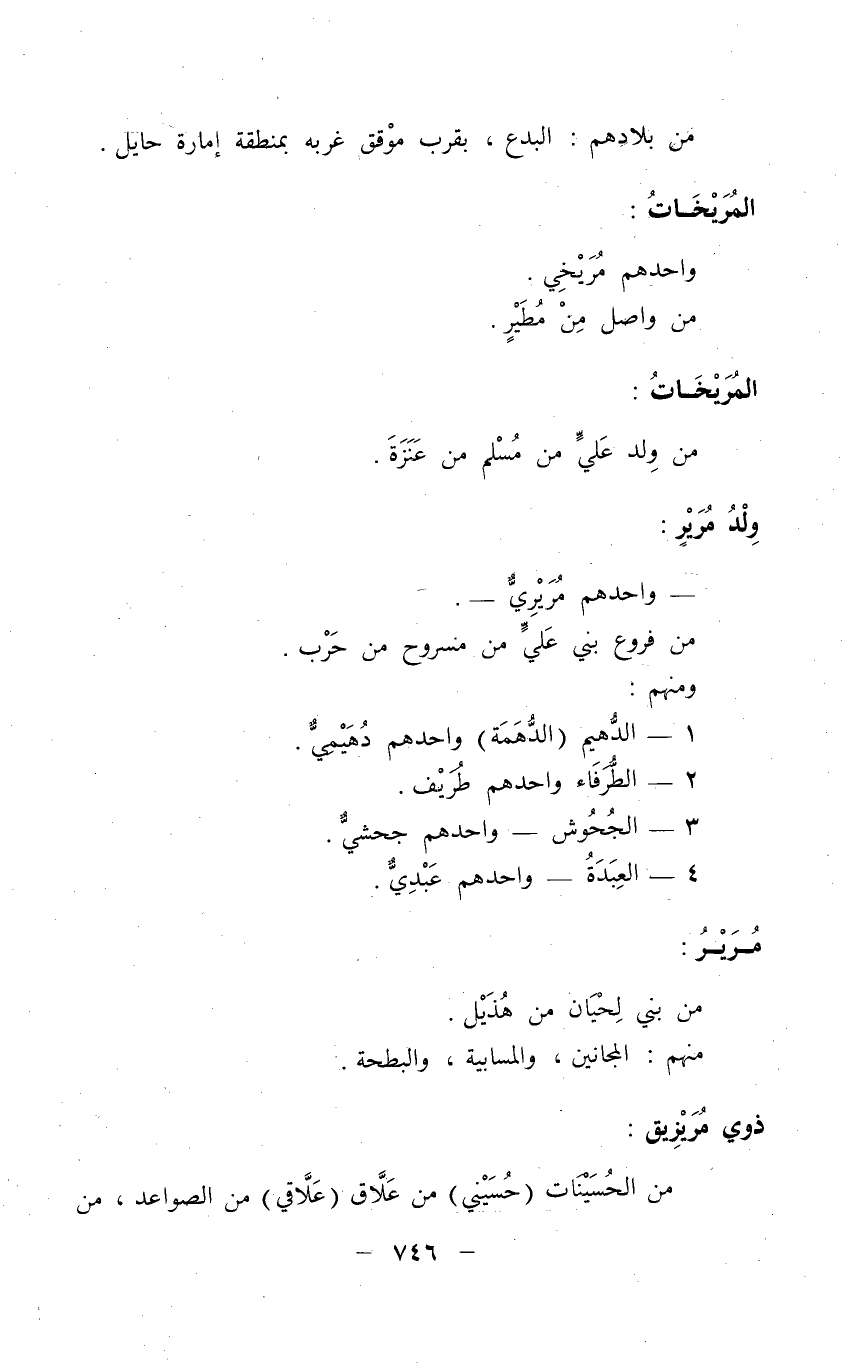 من بلادهم : البدع ، بقرب موْقق غربه بمنطقة إمارة حايل .
المُرَيْخَـاتُ :
واحدهم مُرَيْخِي .
من واصل مِنْ مُطَيْرٍ .
المُرَيْخَـاتُ :
من وِلد عَليٍّ من مُسْلم من عَنَزَةَ .
وِلْدُ مُرَيْرٍ :
— واحدهم مُرَيْرِيٌّ — .
من فروع بني عَليٍّ من مسروح من حَرْب .
ومنهم :
١ — الدُّهيم (الدُّهَمَة) واحدهم دُهَيْمِيٌّ .
٢ — الطُّرَفَاء واحدهم طُرَيْف .
٣ — الجُحُوش — واحدهم جحشيٌّ .
٤ — العِبَدَةُ — واحدهم عَبْدِيٌّ .
مُـرَيْـرُ :
من بني لِحْيَان من هُذَيْل .
منهم : المجانين ، والمسابية ، والبطحة .
ذوي مُرَيْزِيق :
من الحُسَيْنَات (حُسَيْني) من عَلَّاق (عَلَّاقي) من الصواعد ، من
— ٧٤٦ —